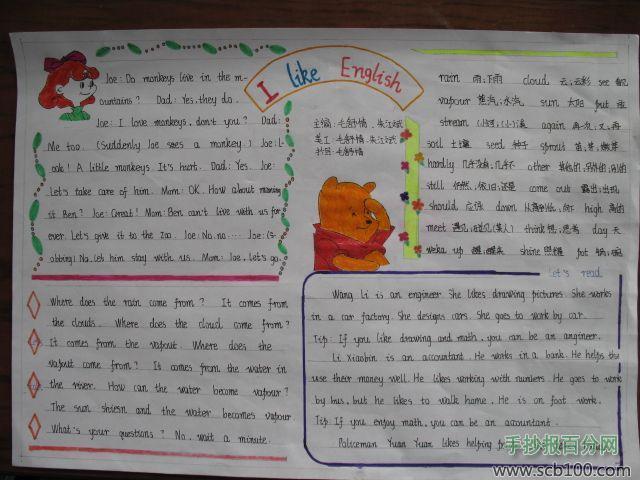 I like English
Joe: Do monkeys live in the m-
ountains? Dad: Yes, they do.
Joe: I love monkeys, don't you? Dad:
Me too. (Suddenly Joe sees a monkey) Joe: L-
ook! A little monkeys It's hurt. Dad: Yes. Joe:
Let's take care of him. Mom: OK. How about naming
it Ben? Joe: Great! Mom: Ben can't live with us for
ever. Let's give it to the zoo. Joe: No, no.... Joe: (S-
obbing) No, let him stay with us. Mom: Joe, let's go.
主编:毛舒情、朱江斌
美工:毛舒情、朱江斌
书写:毛舒情
rain 雨;下雨 cloud 云;云彩 see 看见
vapour 蒸汽;水汽 sun 太阳 put 放
stream (小)河;(小)溪 again 再一次;又;再
soil 土壤 seed 种子 sprout 苗;芽;嫩芽
hardly 几乎没有;几乎不 other 其他的;另外的;别的
still 仍然;依旧;还是 come out 露出;出现
should 应该 down 从高到低;向下 high 高的
meet 遇见;碰见(某人) think 想;思考 day 天
wake up 醒;醒来 shine 照耀 pot 锅;
Where does the rain come from? It comes from
the clouds. Where does the cloud come from?
It comes from the vapout. Where does the
vapout come from? It comes from the water in
the river. How can the water become vapour?
The sun shiesn and the water becomes vapour
What's your questions? No, wait a minute.
Let's read
Wang Li is an engineer. She likes drawing pictures. She works
in a car factory. She designs cars. She goes to work by car.
Tip: If you like drawing and math, you can be an angineer.
Li Xiaobin is an accountant. He works in a bank. He helps the
use their money well. He likes working with numbers. He goes to work
by bus, but he likes to walk home. He is on foot work.
Tip: If you enjoy math, you can be an accountant.
Policeman Yuan Yuan likes helping
手抄报百分网
www.scb100.com